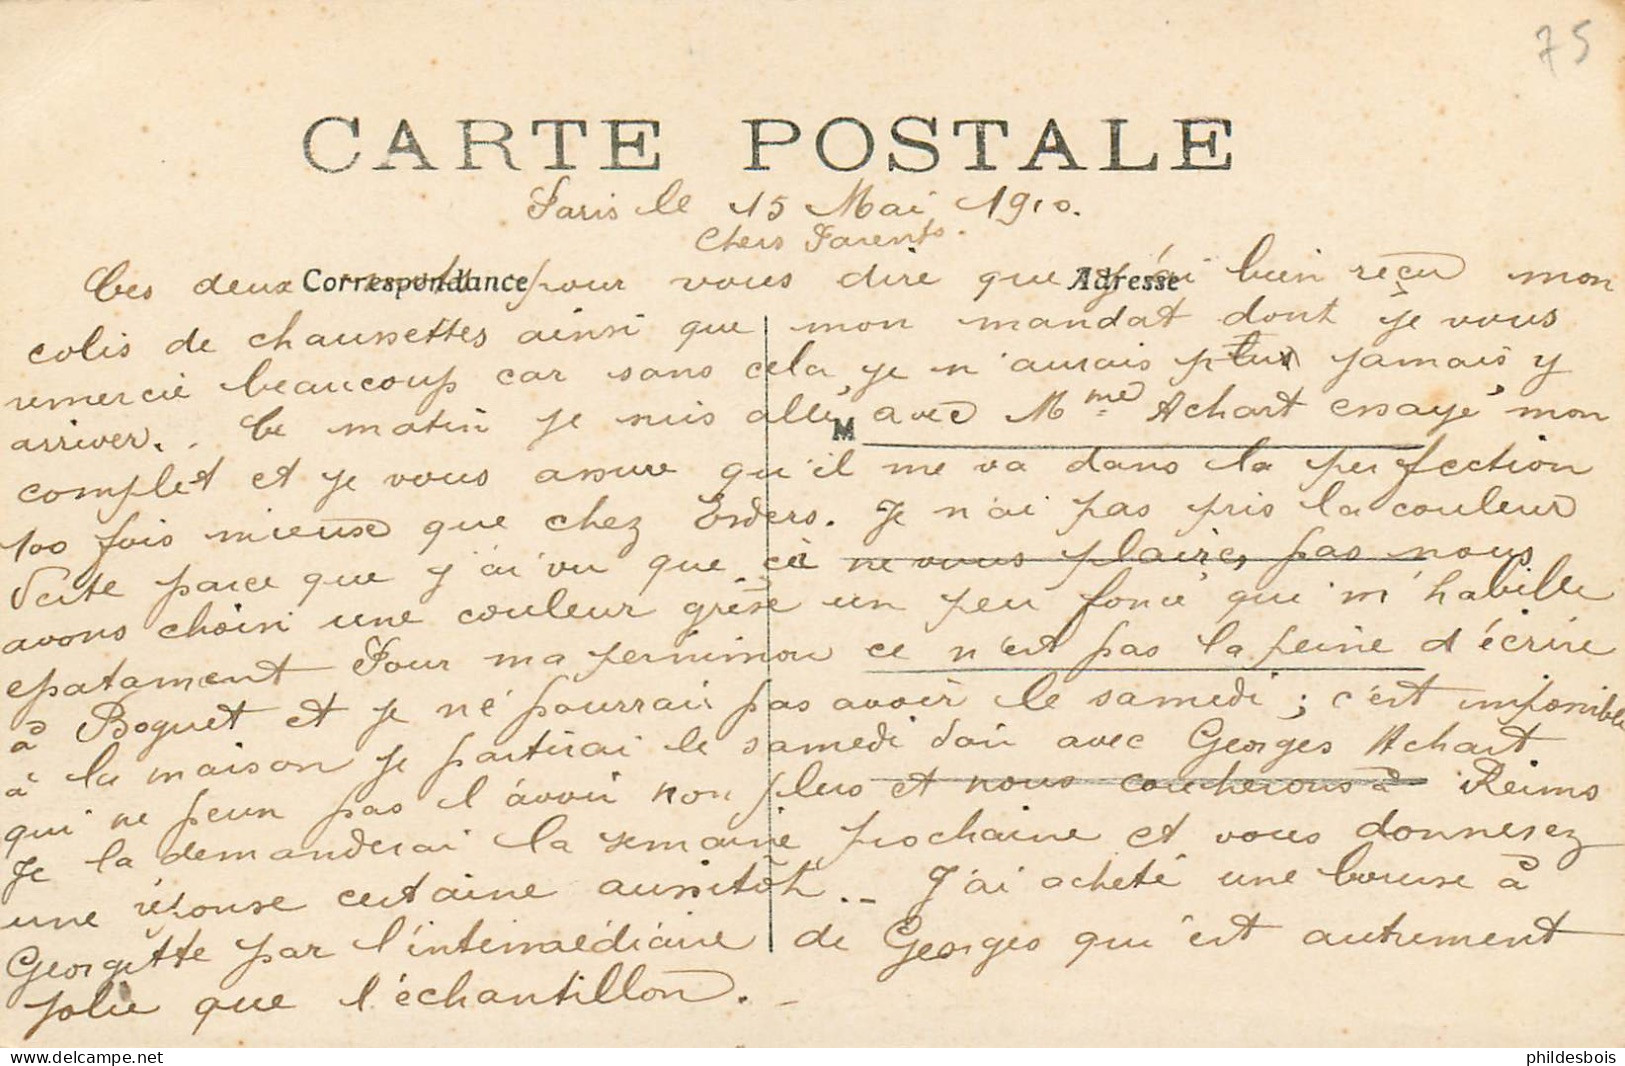 75
CARTE POSTALE
Paris le 15 Mai 1910.
Chers Parents.
Correspondance
Adresse
Ces deux mots pour vous dire que j'ai bien reçu mon
colis de chaussettes ainsi que mon mandat dont je vous
remercie beaucoup car sans cela, je n'aurais plus jamais y
arriver.. Ce matin je suis allé, avec Mme Achart essayé mon
M
complet et je vous assure qu'il me va dans la perfection
100 fois mieux que chez Esders. Je n'ai pas pris la couleur
verte parce que j'ai vu que ça ne vous plaire, pas nous
avons choisi une couleur grise un peu foncé qui m'habille
epatament Pour ma permission ce n'est pas la peine d'écrire
à Boquet et je ne pourrai pas avoir le samedi ; c'est impossible
à la maison je partirai le samedi soir avec Georges Achart
qui ne peux pas l'avoir non plus et nous coucherons à Reims
Je la demanderai la semaine prochaine et vous donnerez
une réponse certaine aussitôt.. J'ai acheté une bourse à
Georgette par l'intermédiaire de Georges qui est autrement
jolie que l'échantillon. -
delcampe.net
phildesbois